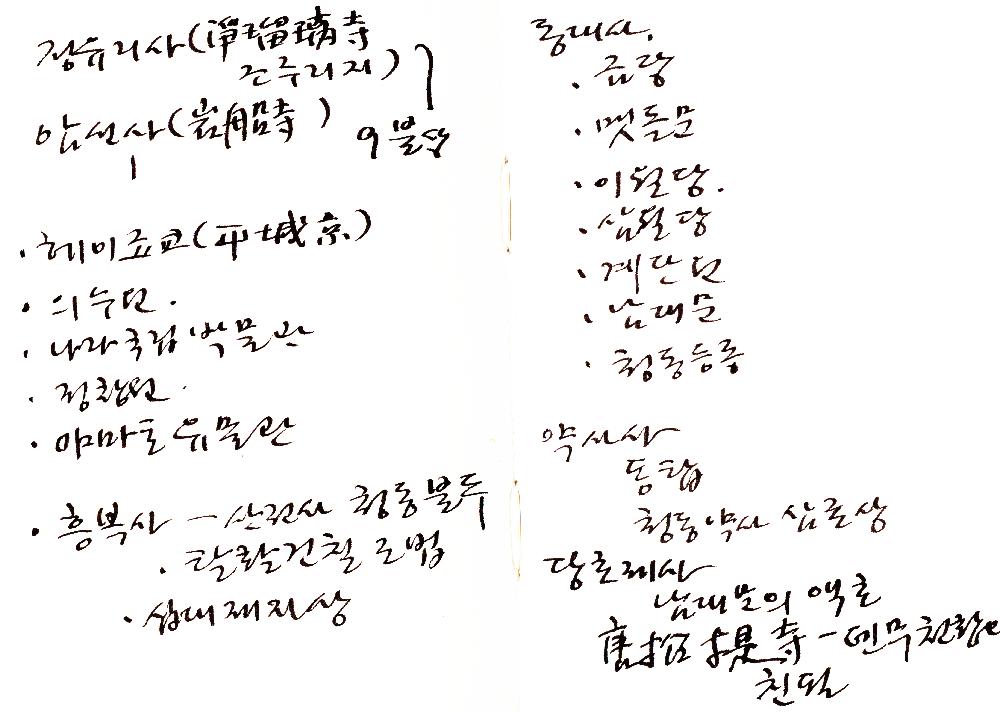 정유리사(淨瑠璃寺
조루리지)
암선사(岩船寺)
9불상
· 헤이죠쿄(平城京)
· 의수원.
· 나라국립박물관
· 정창원.
· 야마토유물관
· 흥복사 - 산전사 청동불두
· 탈활건칠 조법
· 십대제자상
동대사.
· 금당
· 맷돌문
· 이월당.
· 삼월당
· 계단원
· 남대문
· 청동등롱
약사사
동탑
청동약사 삼존상
당초제사
남대문의 액호
唐招提寺 - 텐무천황의
친필